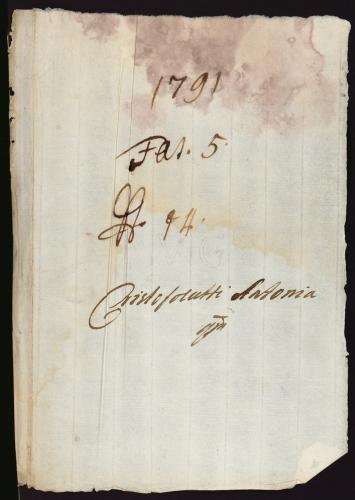 1791
Fas. 5.
N. 94.
Cristofolutti Antonia
qm